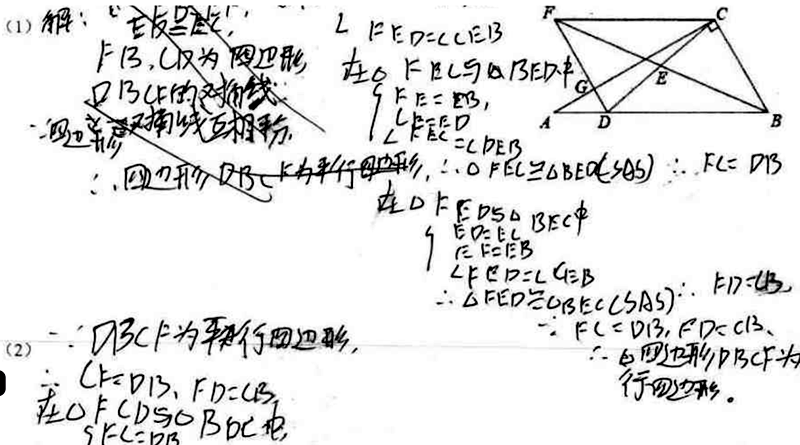 (1) 解:
FB、CD为四边形
DBCF的对角线
对角线互相平分,
∴四边形DBCF为平行四边形,
∠FED=∠CEB
在△FEC与△BED中
FE=EB,
CE=ED
∠FEC=∠DEB
∴△FEC≌△BED(SAS) ∴FC=DB
在△FED与△BEC中
ED=EC
EF=EB
∠FED=∠CEB
∴△FED≌△BEC(SAS) ∴FD=CB
∵FC=DB,FD=CB、
∴四边形DBCF为
行四边形。
F
C
G
E
A
D
B
(2) ∵DBCF为平行四边形,
∴CF=DB、FD=CB,
在△FCD与△BDC中,
FC=DB